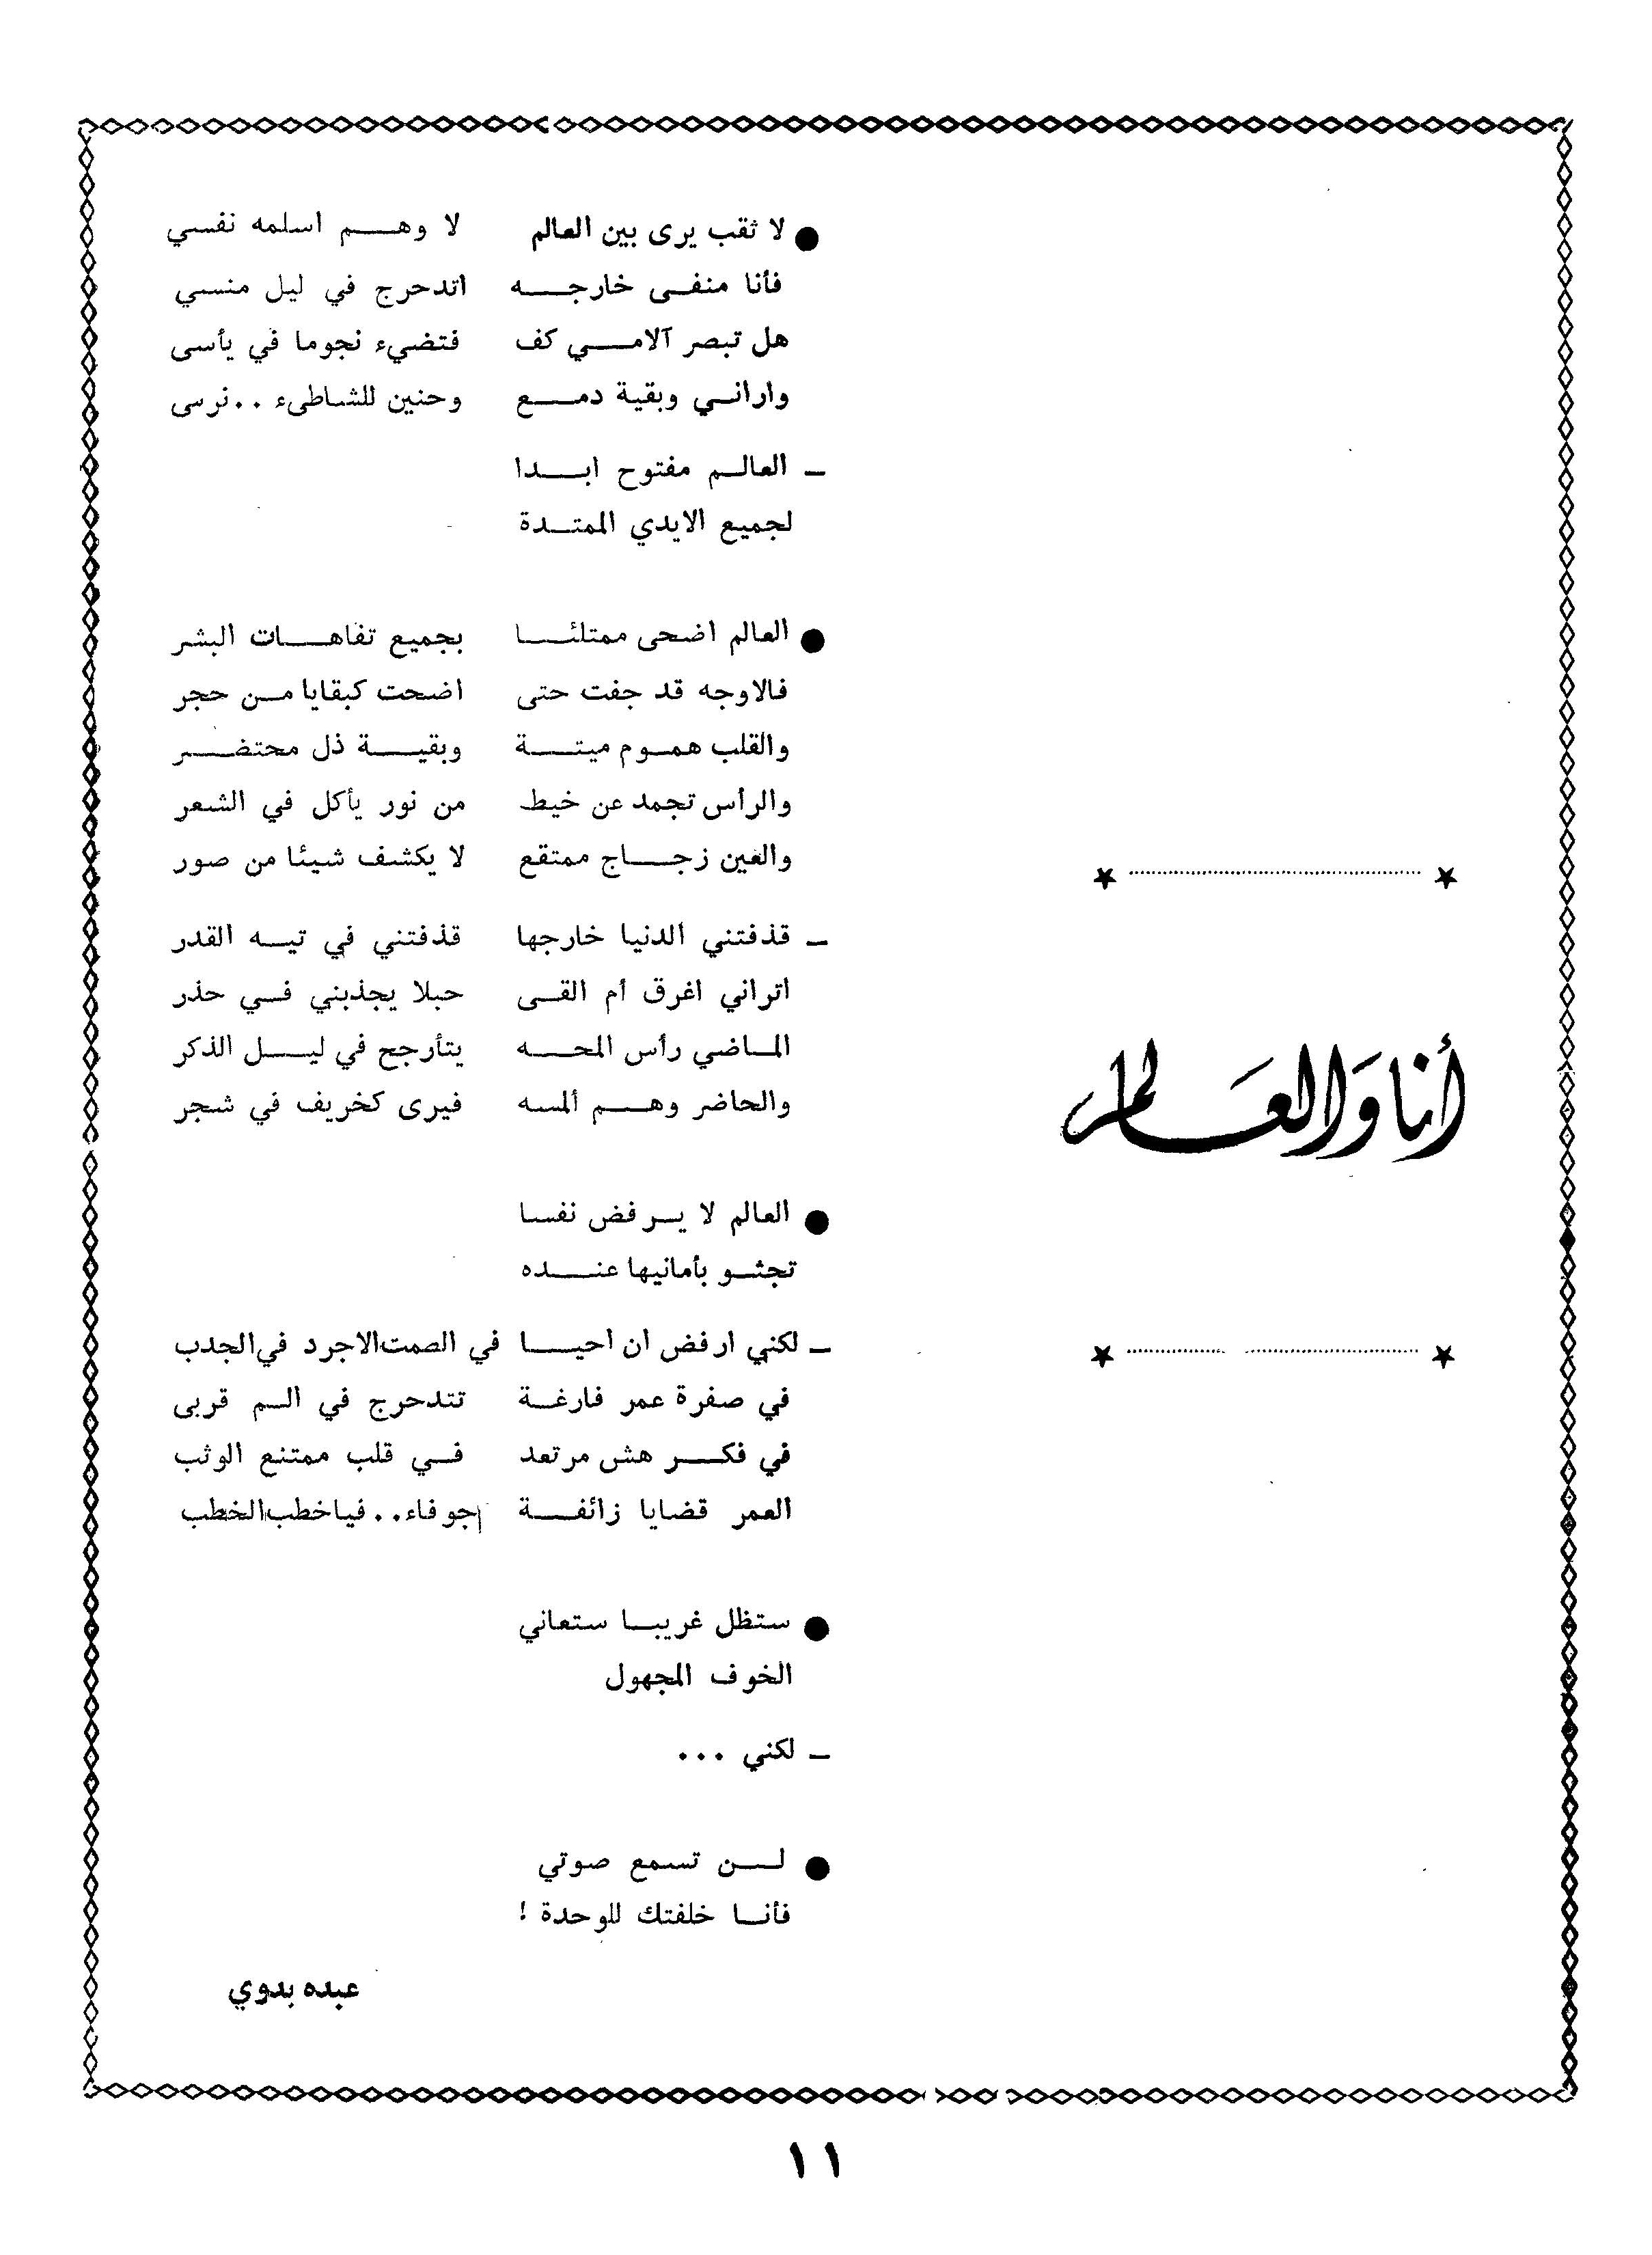 أنا والعالم
● لا ثقب يرى بين العالم لا وهم اسلمه نفسي
فأنا منفى خارجه اتدحرج في ليل منسي
هل تبصر آلامي كف فتضيء نجوما في يأسى
واراني وبقية دمع وحنين للشاطىء .. نرسى
– العالم مفتوح ابدا
لجميع الايدي الممتدة
● العالم اضحى ممتلئا بجميع تفاهات البشر
فالاوجه قد جفت حتى اضحت كبقايا من حجر
والقلب هموم ميتة وبقية ذل محتضر
والرأس تجمد عن خيط من نور يأكل في الشعر
والعين زجاج ممتقع لا يكشف شيئا من صور
– قذفتني الدنيا خارجها قذفتني في تيه القدر
اتراني اغرق أم القى حبلا يجذبني في حذر
الماضي رأس المحه يتأرجح في ليل الذكر
والحاضر وهم ألمسه فيرى كخريف في شجر
● العالم لا يرفض نفسا
تجثو بأمانيها عنده
– لكني ارفض ان احيا في الصمت الاجرد في الجدب
في صفرة عمر فارغة تتدحرج في الم قربى
في فكر هش مرتعد في قلب ممتنع الوثب
العمر قضايا زائفة جوفاء .. فيا خطب الخطب
● ستظل غريبا ستعاني
الخوف المجهول
– لكني ...
● لن تسمع صوتي
فأنا خلفتك للوحدة !
عبده بدوي
١١